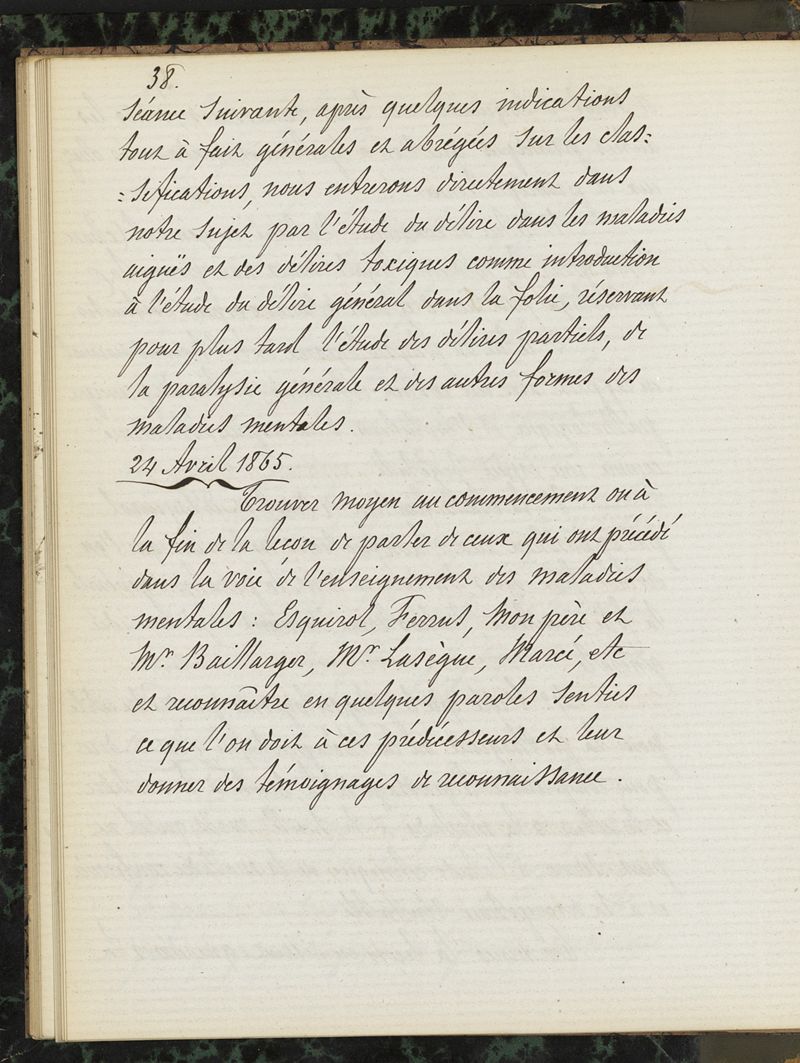 38.
Séance suivante, après quelques indications
tout à fait générales et abrégées sur les clas=
=sifications, nous entrerons directement dans
notre sujet par l'étude du délire dans les maladies
aiguës et des délires toxiques comme introduction
à l'étude du délire général dans la folie, réservant
pour plus tard l'étude des délires partiels, de
la paralysie générale et des autres formes des
maladies mentales.
24 Avril 1865.
Trouver moyen au commencement ou à
la fin de la leçon de parler de ceux qui ont précédé
dans la voie de l'enseignement des maladies
mentales : Esquirol, Ferrus, Mon père et
Mr. Baillarger, Mr. Lasègue, Marcé, etc
et reconnaître en quelques paroles senties
ce que l'on doit à ces prédécesseurs et leur
donner des témoignages de reconnaissance.